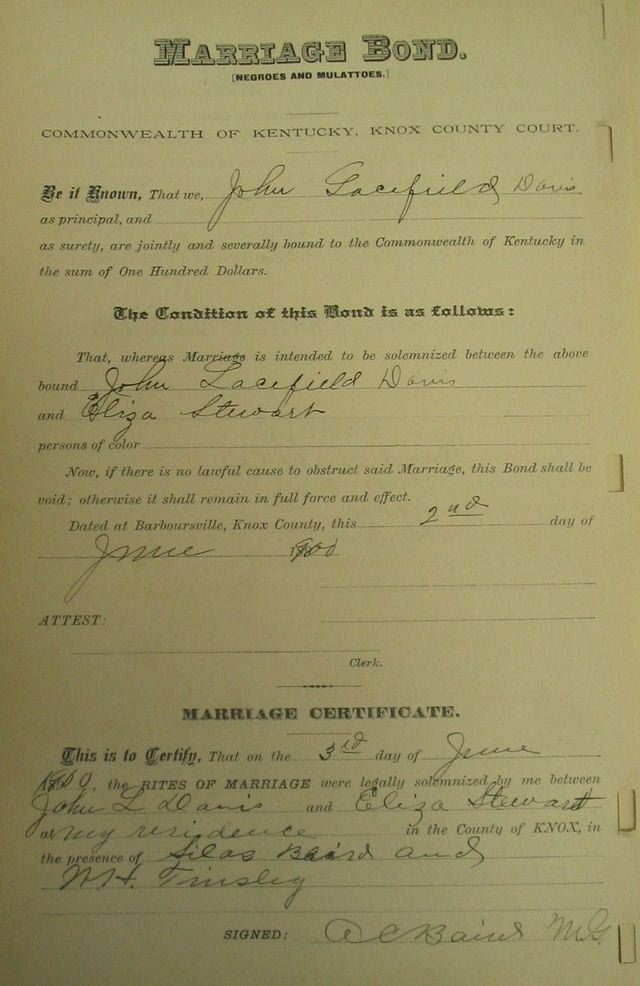 MARRIAGE BOND.
[NEGROES AND MULATTOES.]
COMMONWEALTH OF KENTUCKY, KNOX COUNTY COURT.
Be it Known, That we, John Lacefield Davis
as principal, and
as surety, are jointly and severally bound to the Commonwealth of Kentucky in
the sum of One Hundred Dollars.
The Condition of this Bond is as follows:
That, whereas Marriage is intended to be solemnized between the above
bound John Lacefield Davis
and Eliza Stewart
persons of color
Now, if there is no lawful cause to obstruct said Marriage, this Bond shall be
void; otherwise it shall remain in full force and effect.
Dated at Barboursville, Knox County, this 2nd day of
June 1900
ATTEST:
Clerk.
MARRIAGE CERTIFICATE.
This is to Certify, That on the 3rd day of June
1900, the RITES OF MARRIAGE were legally solemnized by me between
John L Davis and Eliza Stewart
at my residence in the County of KNOX, in
the presence of Silas Baird and
W.H. Tinsley
SIGNED: A C Baird M.G.